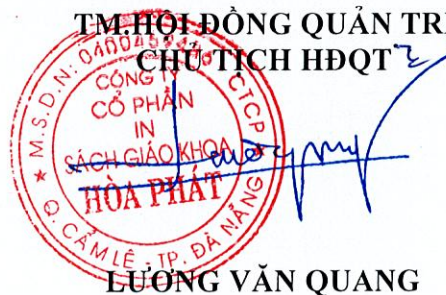 TM.HỘI ĐỒNG QUẢN TRỊ
CHỦ TỊCH HĐQT
M.S.D.N:
C.T.C.P
CÔNG TY
CỔ PHẦN
IN
SÁCH GIÁO KHOA
HÒA PHÁT
Q. CẨM LỆ - TP. ĐÀ NẴNG
LƯƠNG VĂN QUANG